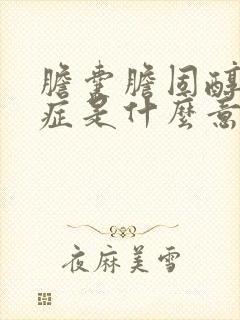 膽囊膽固醇
症是什麼意
夜麻美雪